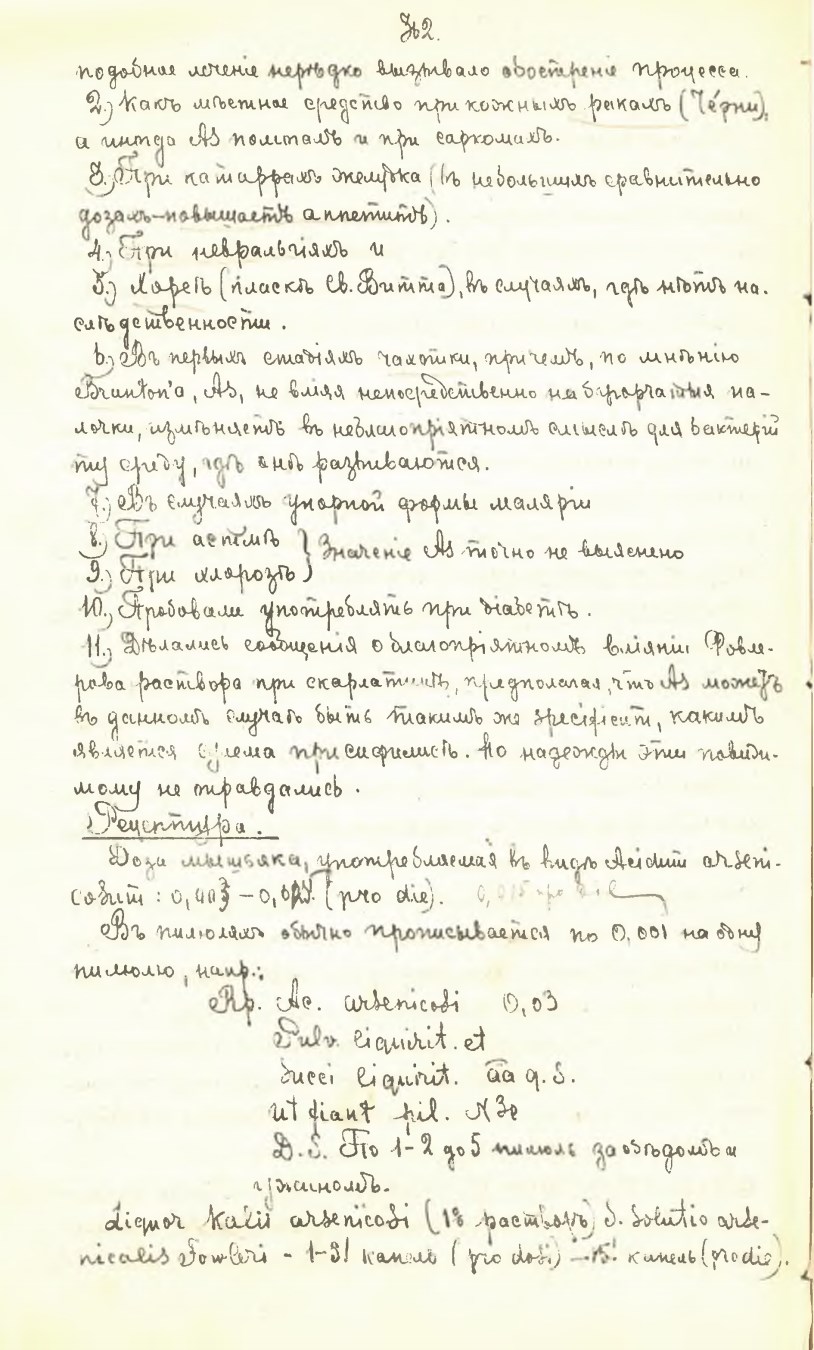 32.
подобное лѣченіе нерѣдко вызывало обостреніе процесса.
2.) Какъ мѣстное средство при кожныхъ ракахъ (Чéрни),
а иногда As помогалъ и при саркомахъ.
3.) При катаррахъ желудка (въ небольшихъ сравнительно
дозахъ-повышаетъ аппетитъ).
4.) При невральгіяхъ и
5.) Хореѣ (пляскѣ Св. Витта), въ случаяхъ, гдѣ нѣтъ на-
слѣдственности.
6.) Въ первыхъ стадіяхъ чахотки, причемъ, по мнѣнію
Brunton'a, As, не вліяя непосредственно на бугорчатыя па-
лочки, измѣняетъ въ неблагопріятномъ смыслѣ для бактерій
ту среду, гдѣ онѣ развиваются.
7.) Въ случаяхъ упорной формы маляріи
8.) При астмѣ
9.) При хлорозѣ } Значеніе As точно не выяснено
10.) Пробовали употреблять при діабетѣ.
11.) Дѣлались сообщенія о благопріятномъ вліяніи Фовле-
рова раствора при скарлатинѣ, предполагая, что As можетъ
въ данномъ случаѣ быть такимъ же specificum, какимъ
является сулема при сифилисѣ. Но надежды эти повиди-
мому не оправдались.
Рецептура.
Доза мышьяка, употребляемая въ видѣ Acidum arseni-
cosum: (pro die).
Въ пилюляхъ обычно прописывается по 0,001 на одну
пилюлю, напр.:
Rp. Ac. arsenicosi 0,03
Pulv. liquirit. et
Succi liquirit. āā q. s.
ut fiant pil. N 30
D. S. По 1-2 до 5 пилюль за обѣдомъ и
ужиномъ.
Liquor Kalii arsenicosi (1% растворъ) s. Solutio arse-
nicalis Fowleri - капель (pro dosi) капель (pro die).